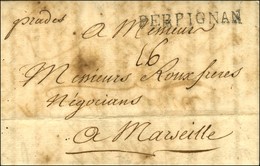 prades
PERPIGNAN
A Messieurs
16
Messieurs Roux freres
Négocians
a Marseille